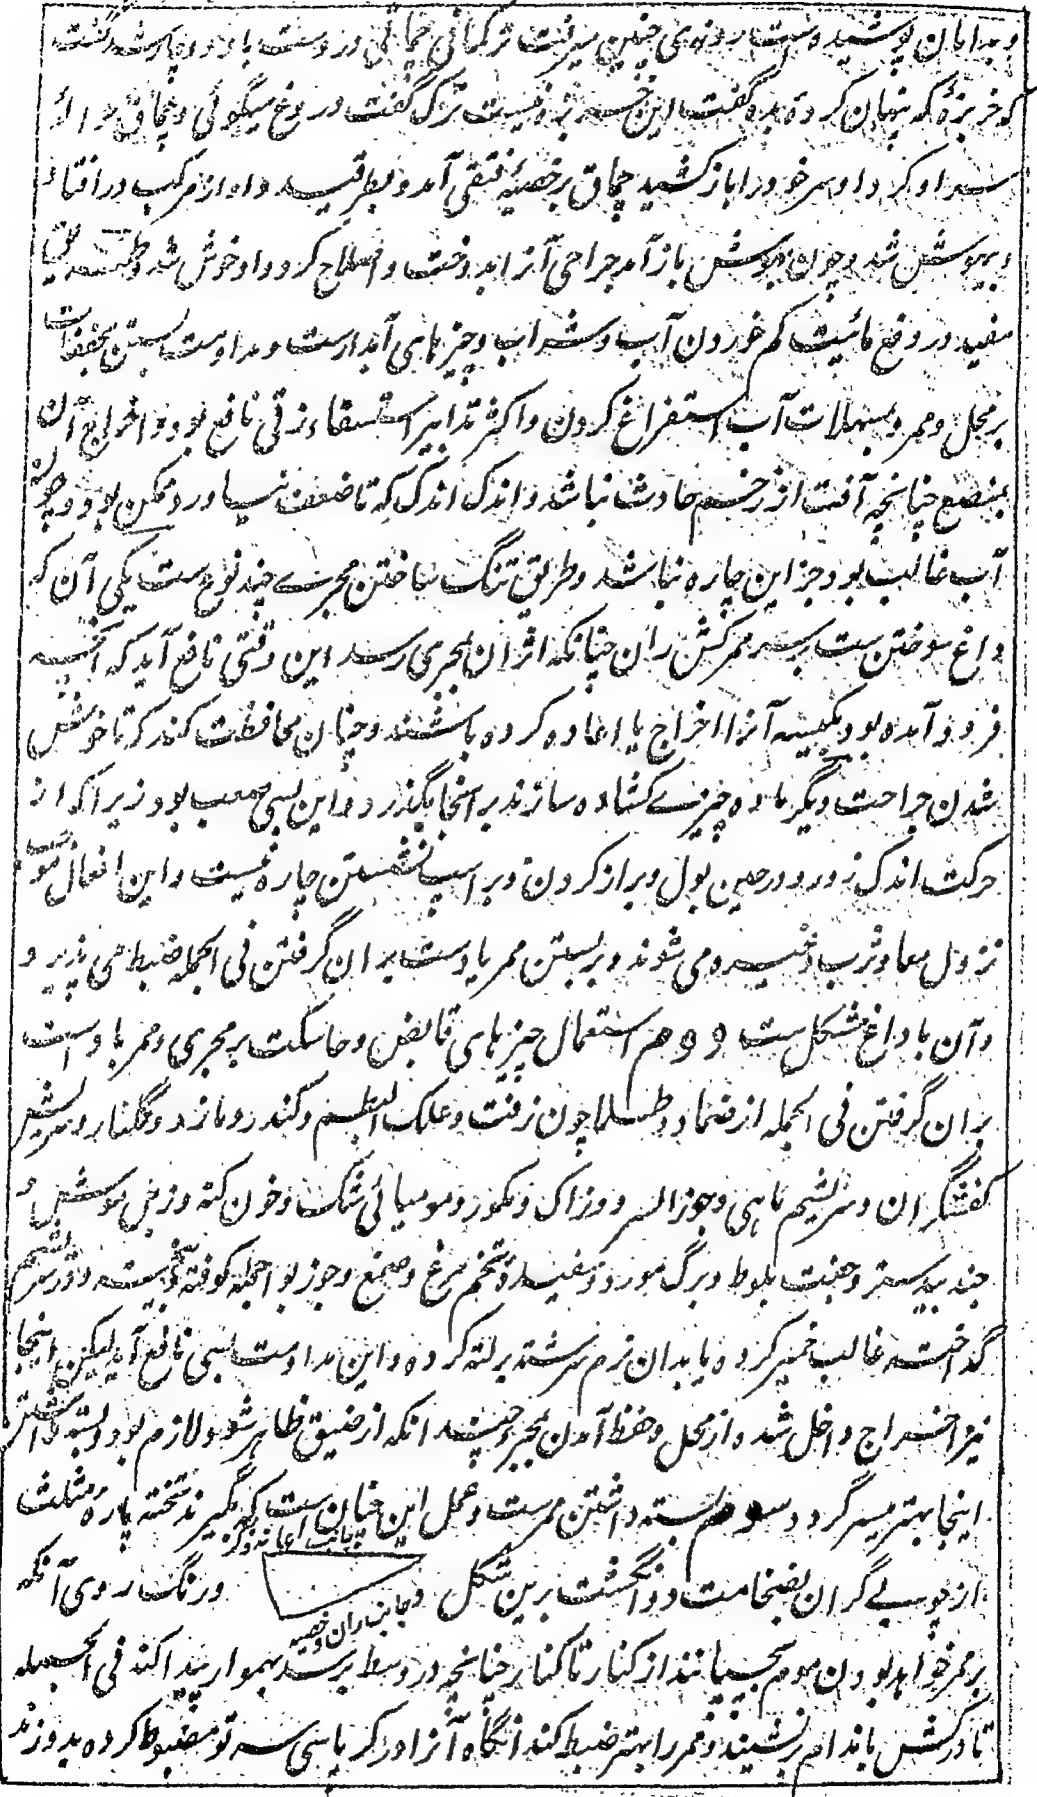 و بدابان پوشیده است روزی چنین میرفت ترکمانی چماقی در دست با او دوچار شد گفت
که خربزهٔ که پنهان کردهٔ بده گفت این خربزه نیست ترک گفت دروغ میگوئی و چماقی حوالهٔ
سر او کرد او سر خود را باز کشید چماق بر خصیهٔ فتقی آمد و بطرقید و او از مرکب در افتاد
و بیهوش شد و چون بهوش باز آمد جراحی آنرا بدوخت و اصلاح کرد و او خوش شد و
مفید در دفع مائیت کم خوردن آب و شراب و چیزهای آبدارست و مداومت بستن مجففات
بر محل و ممر و بمسهلات آب استفراغ کردن و اکثر تدابیر استسقاء زقی نافع بود و اخراج آن
بمبضع چنانچه آفت از زخم حادث نباشد و اندک اندک که تا ضعف نیاورد ممکن بود و چون
آب غالب بود جز این چاره نباشد و طریق تنگ ساختن مجری چند نوع ست یکی آن که
داغ سوختن ست بر سر ممر کش ران چنانکه اثر آن بمجری رسد این وقتی نافع آید که آنچه
فرود آمده بود بکیسه آنرا اخراج یا اعاده کرده باشند و چنان محافظت کنند که تا خوش
شدن جراحت دیگر ماده چیزی کشاده سازند بر آنجا نگذرد و این بسی صعب بود زیرا که از
حرکت اندک زور در حین بول و براز کردن و بر اسپ نشستن چاره نیست و این افعال موجب
نزول معا و ثرب و غیره می شوند و بر بستن ممر یا دست بر آن گرفتن فی الجمله ضبط می پذیرد
و آن با داغ مشکل ست دوم استعمال چیزهای قابض و حابس ست بر مجری و ممر با دست
بر آن گرفتن فی الجمله از ضماد و طلا چون زفت و علک البطم و کندر و مازو و گلنار و سریش
کفشگران و سریشم ماهی و جوز السرو و زاک و و مومیائی و مشک و خون کنه و زبل موش و
جند بیدستر و جفت بلوط و برگ مورد و سفیدهٔ تخم مرغ و صمغ و جوز بوا جمله کوفته بیخته و در سریشم
گداخته غالب خمیر کرده یا بدان نرم سرشته بر لته کرده و این مداومت بسی نافع آید لیکن اینجا
نیز اخراج داخل شده از محل و حفظ آمدن بمجری چندانکه اثر ضیق ظاهر شود لازم بود و بسته داشتن
اینجا بهتر میسر گردد سوم بسته داشتن ممرست و عمل این چنان است که بگیرند تخته پاره مثلث
بجانب عانه و کر
از چوب بی گران بضخامت دو انگشت برین شکل و در رنگ روی آنکه
و جانب ران و خصیه
بر ممر خواهد بودن موم بچسپانند از کنار تا کنار چنانچه در وسط برسد بهموار پیدا کند فی الجمله
تا در کش باندام بر نشیند و ممر را بهتر ضبط کند آنگاه آنرا در کرپاسی سه تو مضبوط کرده بدوزند